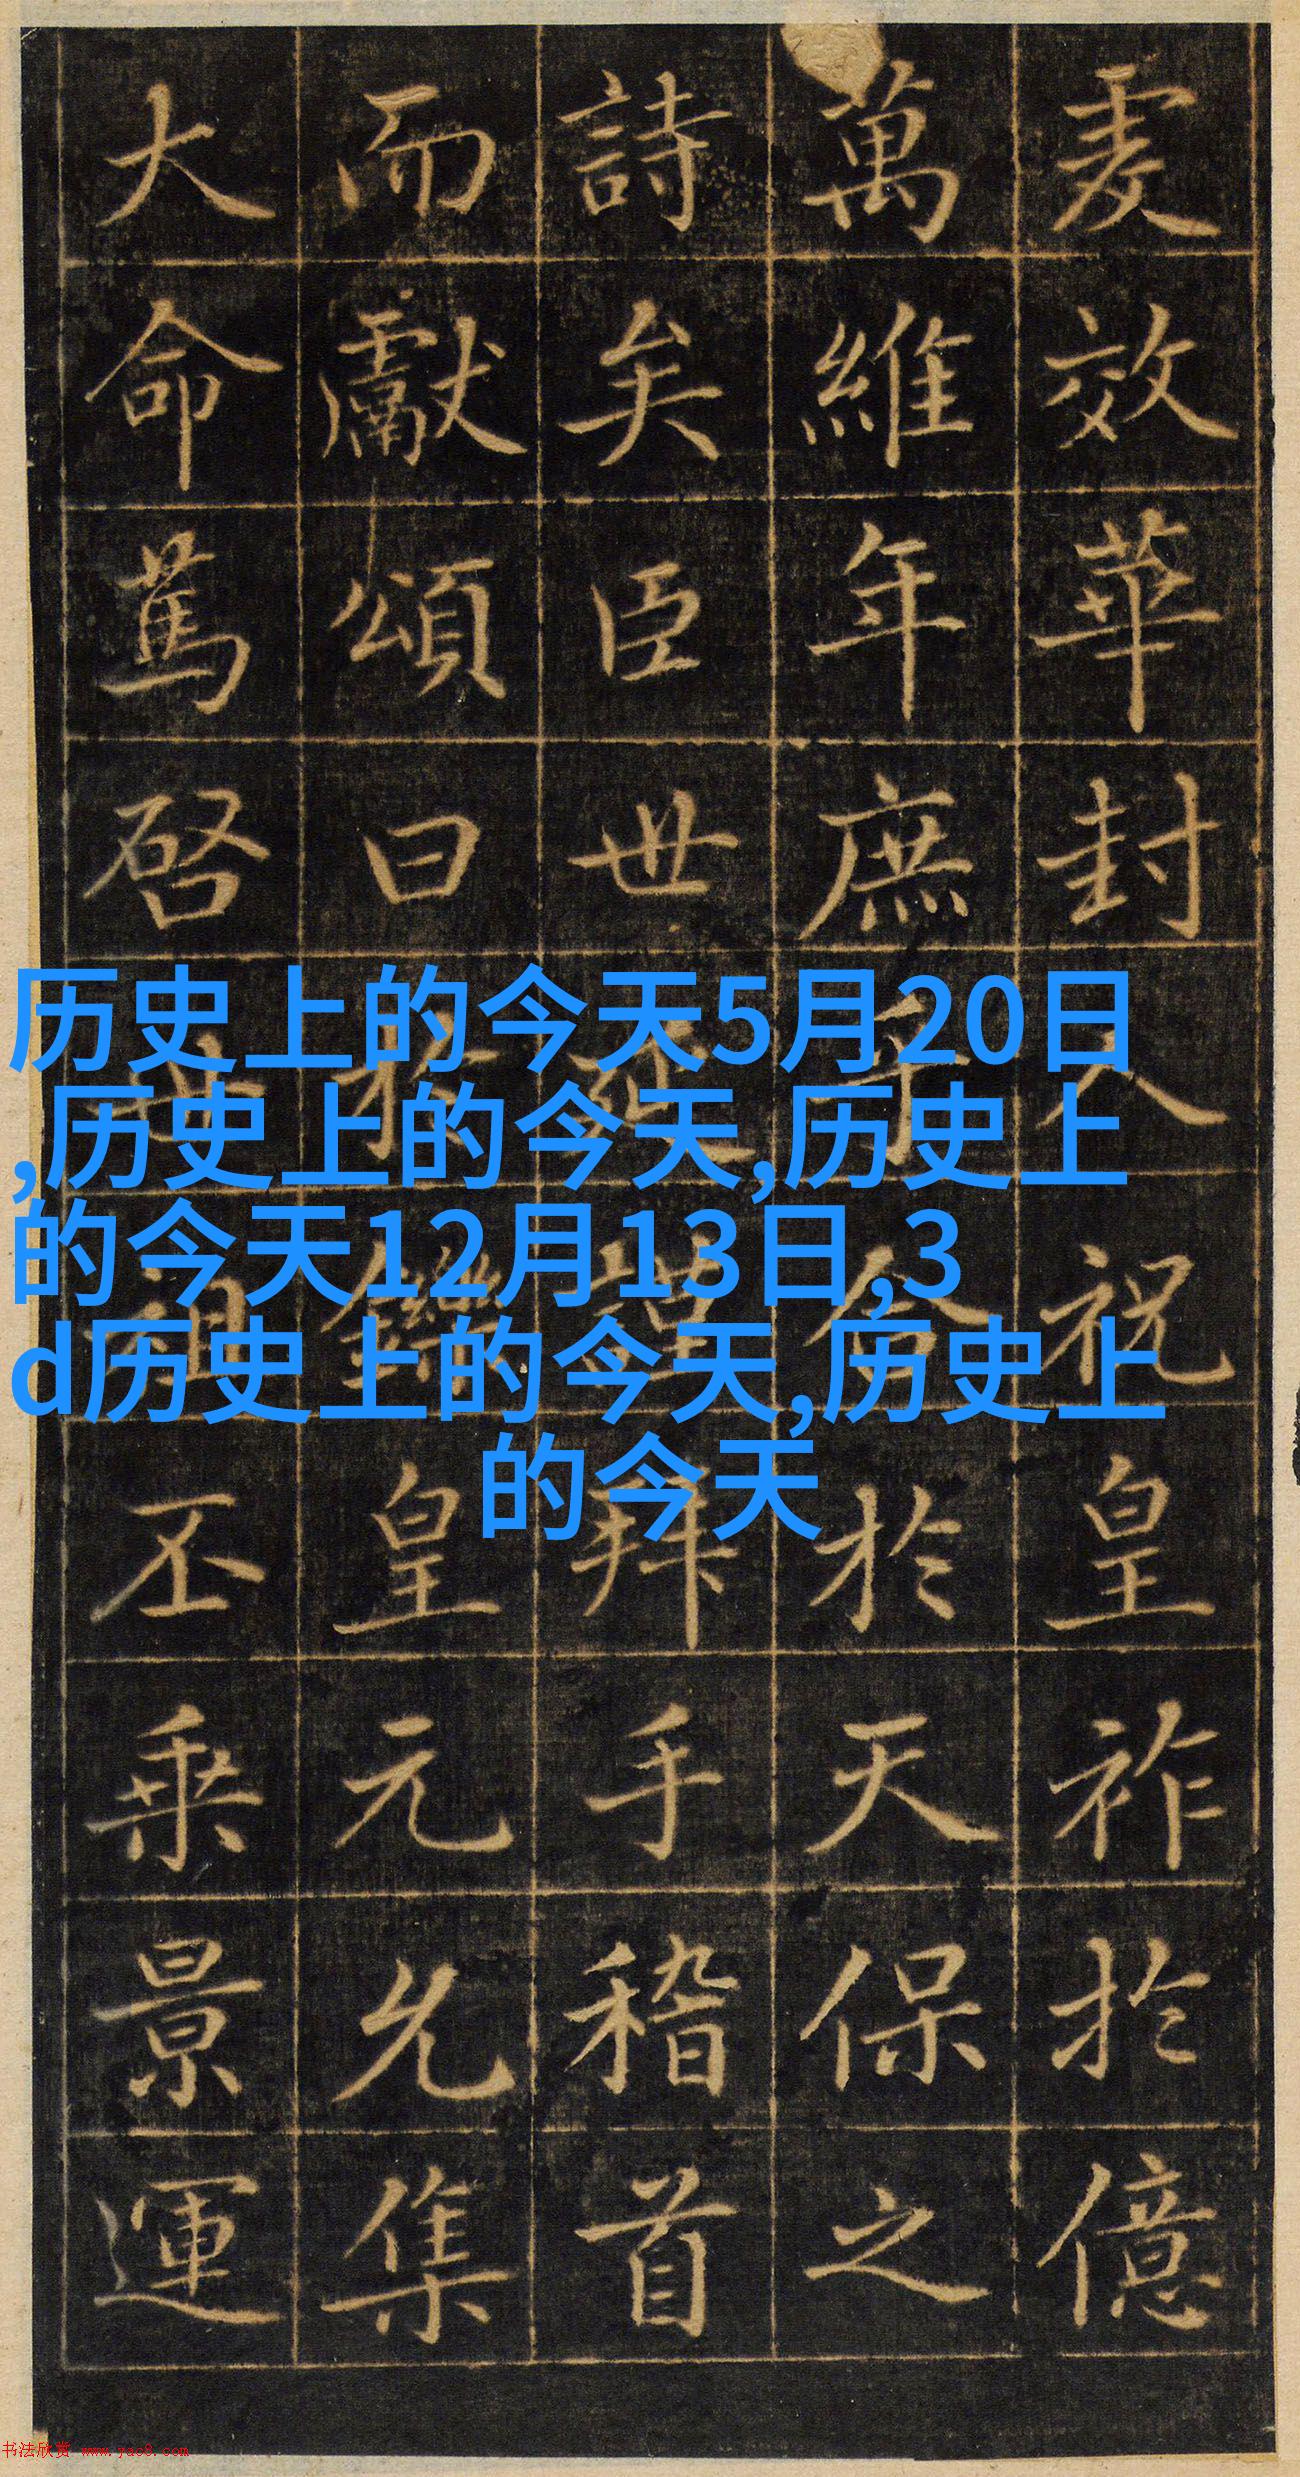 爰效華封人祝皇祚於億
萬維年庶乎合於天保之
詩矣臣世延謹拜手稽首
而獻頌曰於鑠皇元允集
大命篤啓世祖丕乘景運
历史上的今天5月20日
,历史上的今天,历史上
的今天12月13日,3
d历史上的今天,历史上
的今天
书法欣赏 www.yac8.com